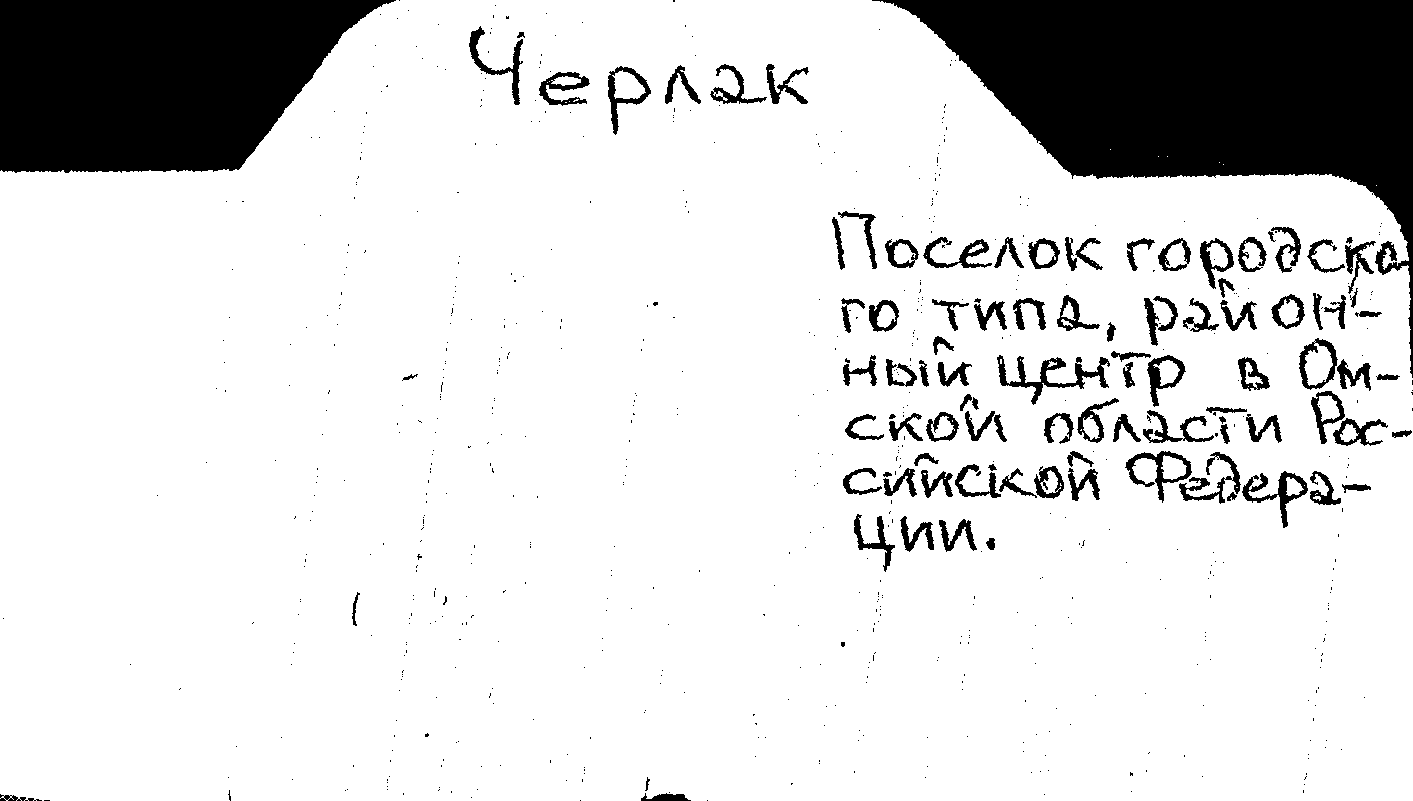 Черлак
Поселок городска-
го типа, район-
ный центр в Ом-
ской области Рос-
сийской Федера-
ции.